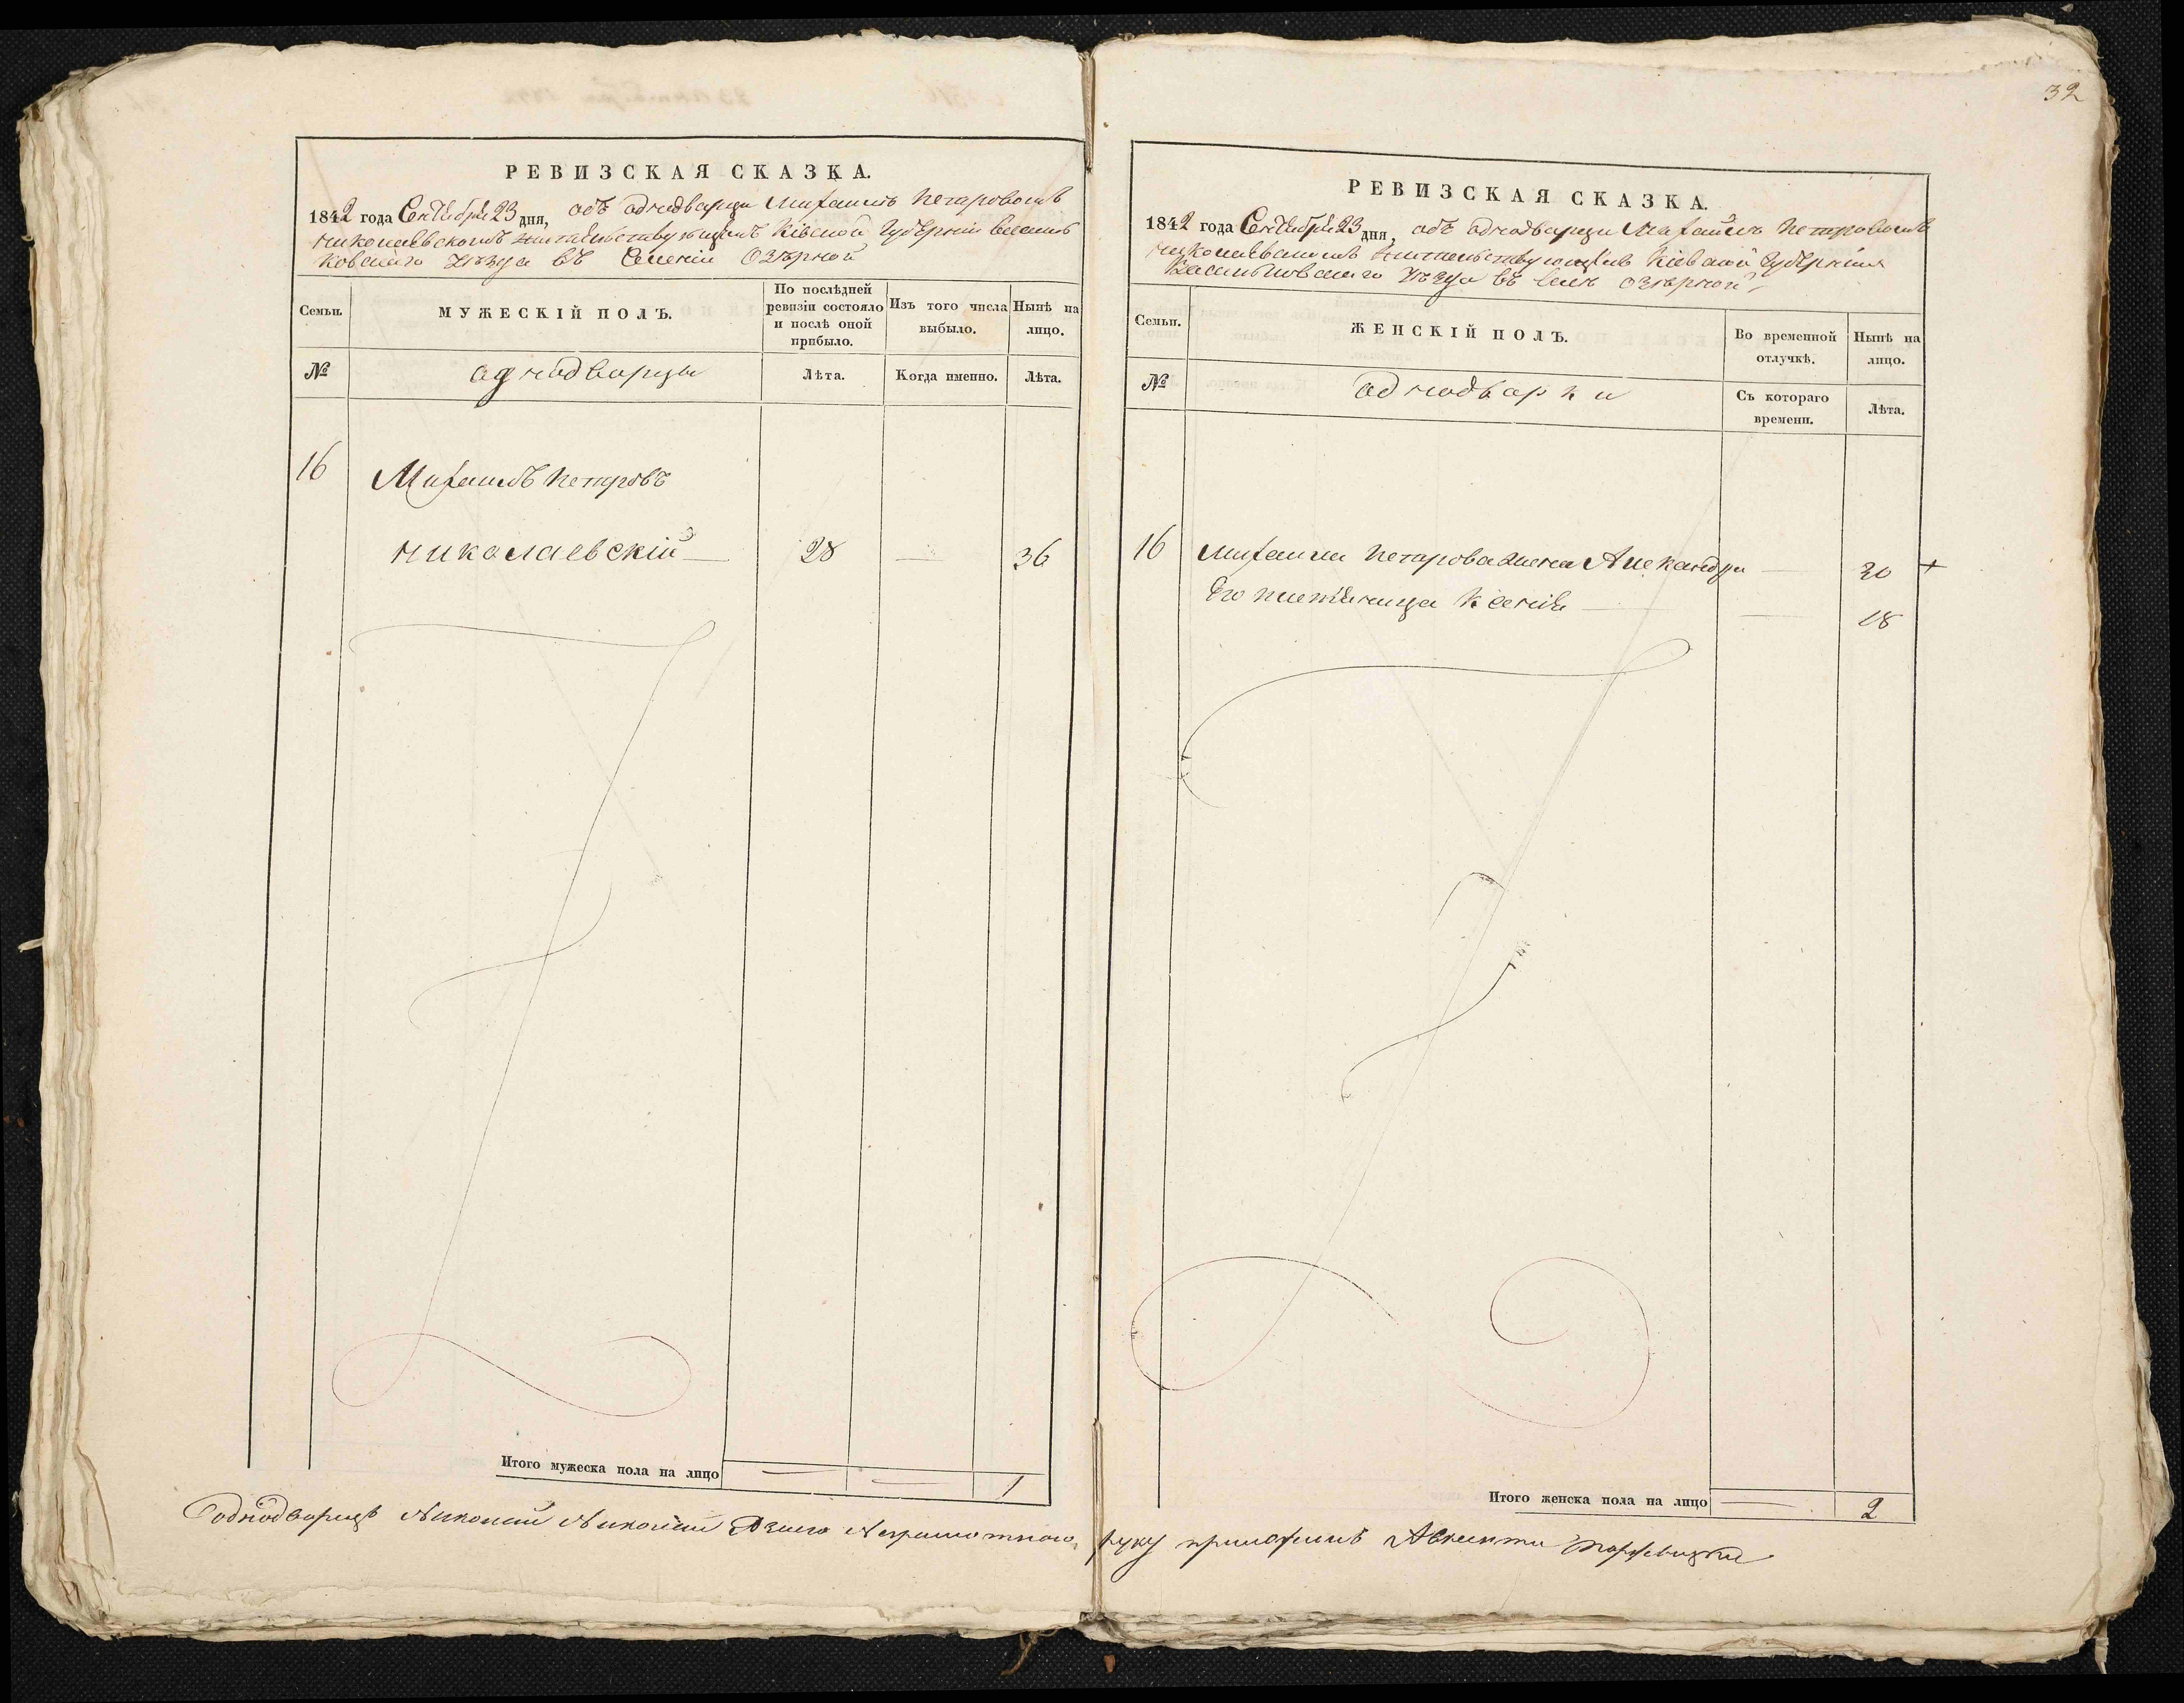 32
РЕВИЗСКАЯ СКАЗКА.
1842 года Сентября 23 дня, объ однодворци Михаилъ Петровомъ
Николаевскомъ жительствующимъ Кіевской Губерніи Василь
ковскаго уѣзда въ Селеніи Озѣрной
Семьи.
МУЖЕСКІЙ ПОЛЪ.
По послѣдней ревизіи состояло и послѣ оной прибыло.
Изъ того числа выбыло.
Нынѣ на лицо.
№
однодворцы
Лѣта.
Когда именно.
Лѣта.
16 Михаилъ Петровъ
Николаевскій — 28 — 36
Итого мужеска пола на лицо — — 1
РЕВИЗСКАЯ СКАЗКА.
1842 года Сентября 23 дня, объ однодворци Михаилѣ Петровомъ
Николаевскомъ жительствующимъ Кіевской Губерніи
Васильковскаго уѣзда въ селѣ Озѣрной
Семьи.
ЖЕНСКІЙ ПОЛЪ.
Во временной отлучкѣ.
Нынѣ на лицо.
№
однодворки
Съ котораго времени.
Лѣта.
16 Михаила Петрова жена Александра — 30 +
Его племяница Ксенія — — 18
Итого женска пола на лицо — 2
однодворецъ Николай Николай руку приложилъ